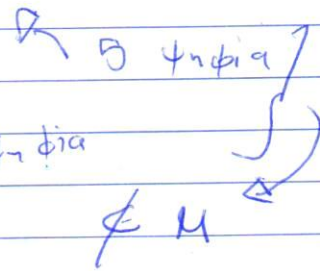 5 ψηφία
ηφία
∉ M